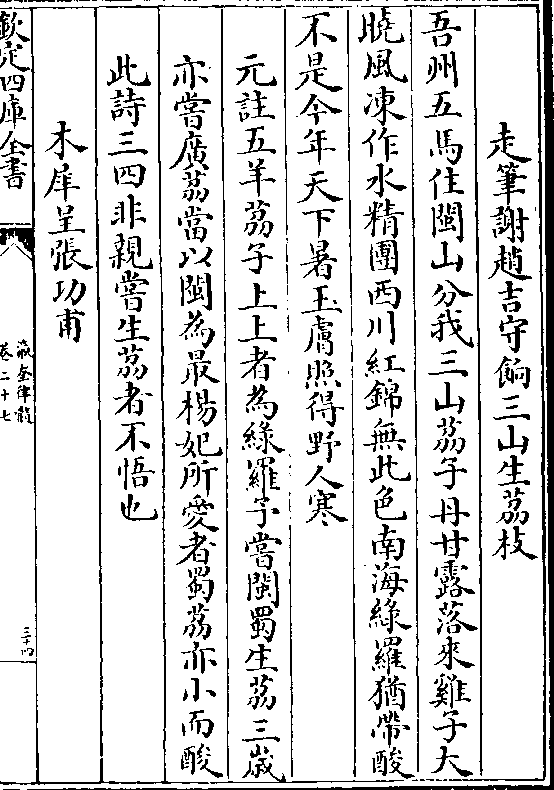 走筆謝趙吉守餉三山生荔枝
吾州五馬住閩山分我三山荔子丹甘露落來雞子大
曉風凍作水精團西川紅錦無此色南海綠羅猶帶酸
不是今年天下暑玉膚照得野人寒
元註五羊荔子上上者為綠羅予嘗閩蜀生荔三嵗
亦嘗廣荔當以閩為最楊妃所愛者蜀荔亦小而酸
此詩三四非親嘗生荔者不悟也
木犀呈張功甫
欽定四庫全書
瀛奎律髓
卷二十七
三十四